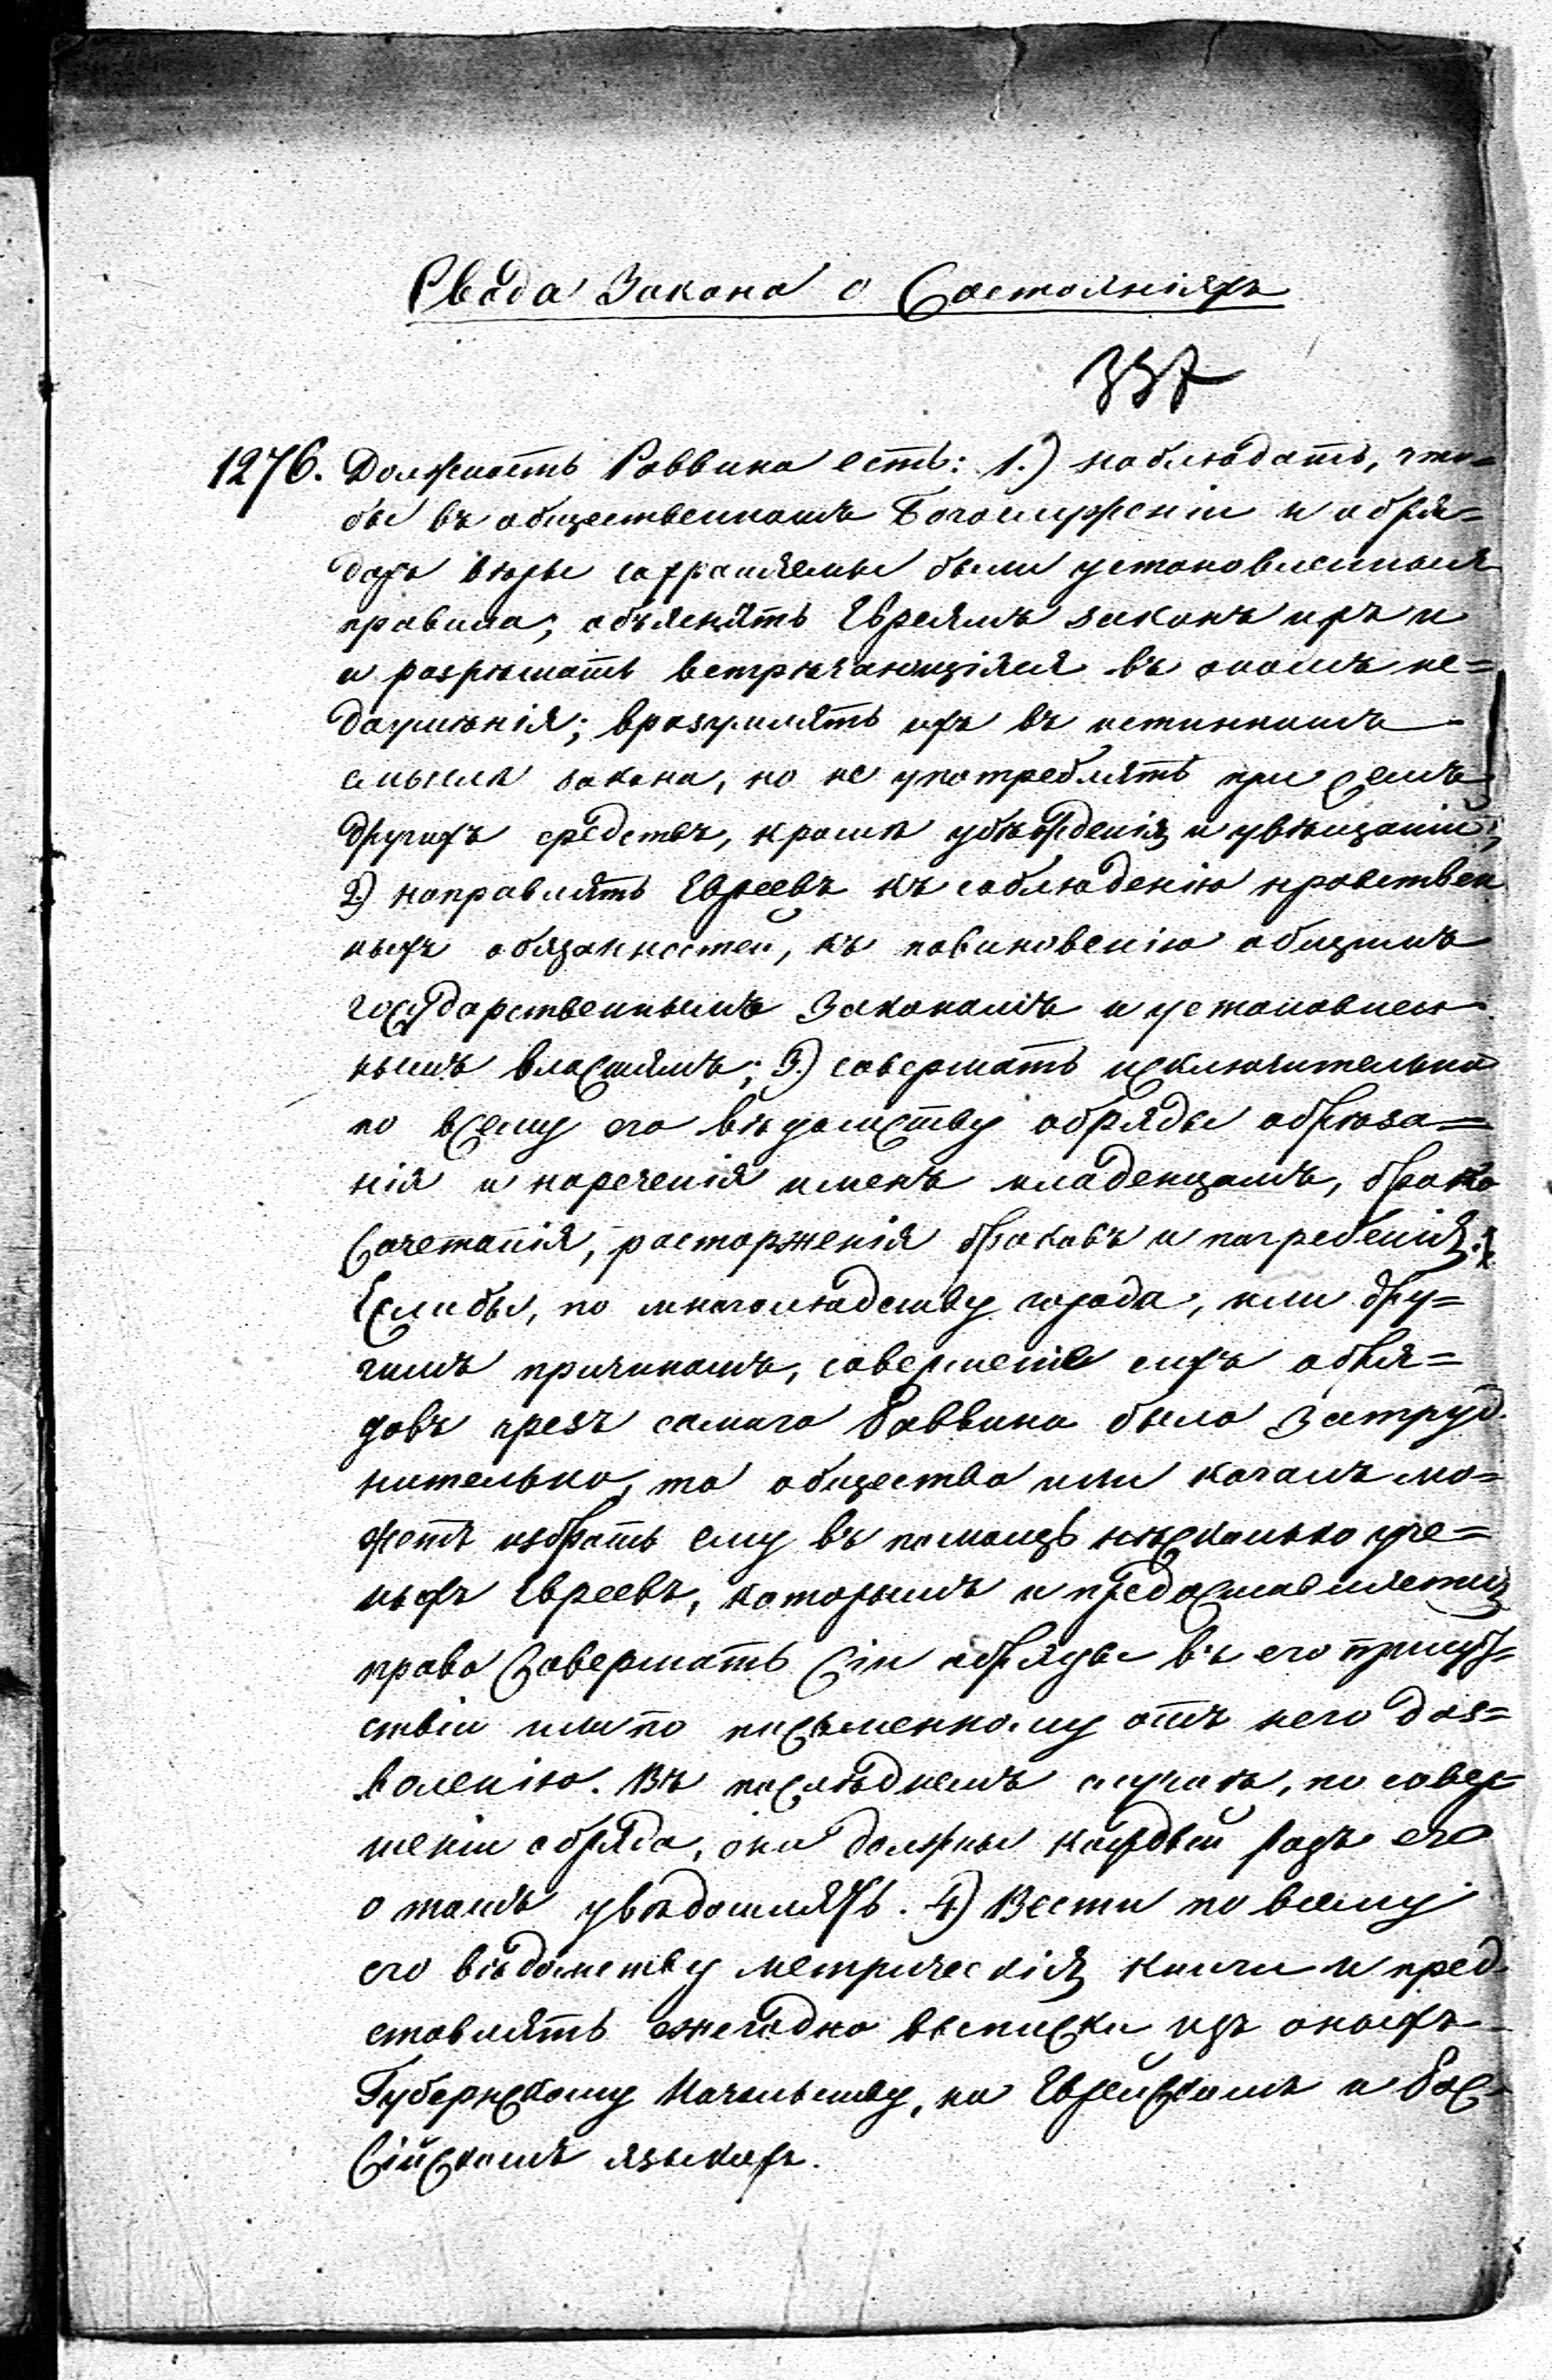 Свода Закона о Состоянiяхъ
337
1276. Должность Раввина есть: 1.) наблюдать, что=
бы въ общественномъ Богослуженiи и обря=
дахъ вѣры сохраняемы были установленныя
правила; объяснять Евреямъ законъ ихъ и
и разрѣшать встрѣчающiяся въ ономъ не=
доумѣнiя; вразумлять ихъ въ истинномъ
смыслѣ закона, но не употреблять при семъ
другихъ средствъ, кромѣ убѣжденiя и увѣщанiй;
2.) направлять Евреевъ къ соблюденiю нравствен
ныхъ обязанностей, къ повиновенiю общимъ
государственнымъ Законамъ и установлен
нымъ властямъ; 3.) совершать исключительно
по всему его вѣдомству обряды обрѣза=
нiя и нареченiя именъ младенцамъ, брако
сочетанiя, расторженiя браковъ и погребенiя.
Еслибы, по многолюдству города, или дру=
гимъ причинамъ, совершенiе сихъ обря=
довъ чрезъ самаго Раввина было затруд
нительно, то общество или кагалъ мо=
жетъ избрать ему въ помощь нѣсколько уче=
ныхъ Евреевъ, которымъ и предоставляется
право совершать сiи обряды въ его присут=
ствiи или по письменному отъ него доз=
воленiю. Въ послѣднемъ случаѣ, по совер=
шенiи обряда, они должны каждый разъ его
о томъ увѣдомлять. 4) Вести по всему
его вѣдомству метрическiя книги и пред
ставлять ежегодно выписки изъ оныхъ
Губернскому Начальству, на Еврейскомъ и Рос=
сiйскомъ языкахъ.